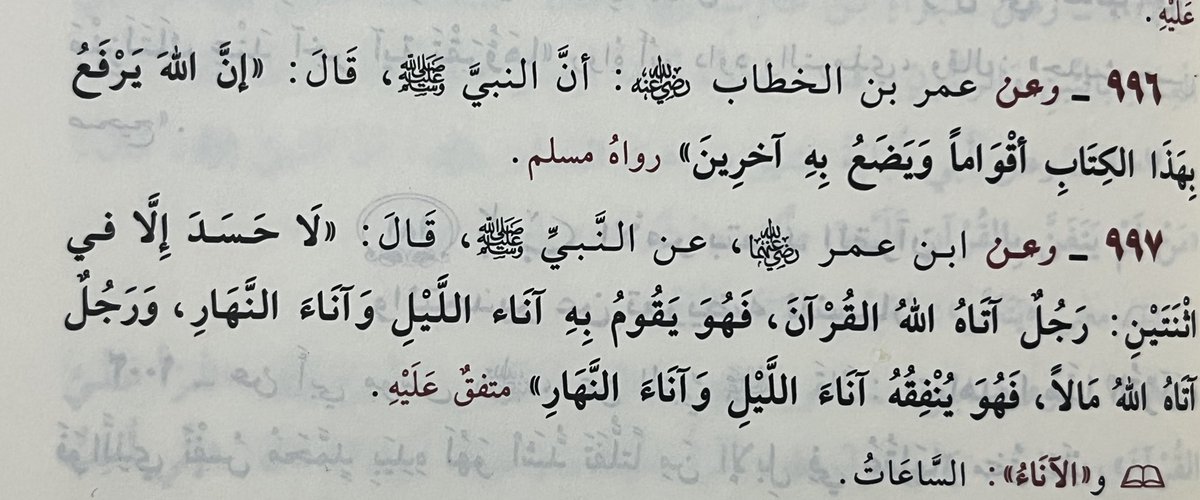 عَلَيْهِ.
٩٩٦ ـ وعن عمر بن الخطاب رضي الله عنه: أنَّ النبيَّ ﷺ، قَالَ: «إنَّ اللهَ يَرْفَعُ
بِهَذَا الكِتَابِ أقْوَاماً وَيَضَعُ بِهِ آخرِينَ» رواهُ مسلم.
٩٩٧ ـ وعن ابن عمر رضي الله عنهما، عن النَّبيِّ ﷺ، قَالَ: «لَا حَسَدَ إِلَّا في
اثْنَتَيْنِ: رَجُلٌ آتَاهُ اللهُ القُرْآنَ، فَهُوَ يَقُومُ بِهِ آنَاء اللَّيْلِ وَآنَاءَ النَّهَارِ، وَرَجُلٌ
آتَاهُ اللهُ مَالاً، فَهُوَ يُنْفِقُهُ آنَاءَ اللَّيْلِ وَآنَاءَ النَّهَارِ» متفقٌ عَلَيْهِ.
و«الآنَاءُ»: السَّاعَاتُ.